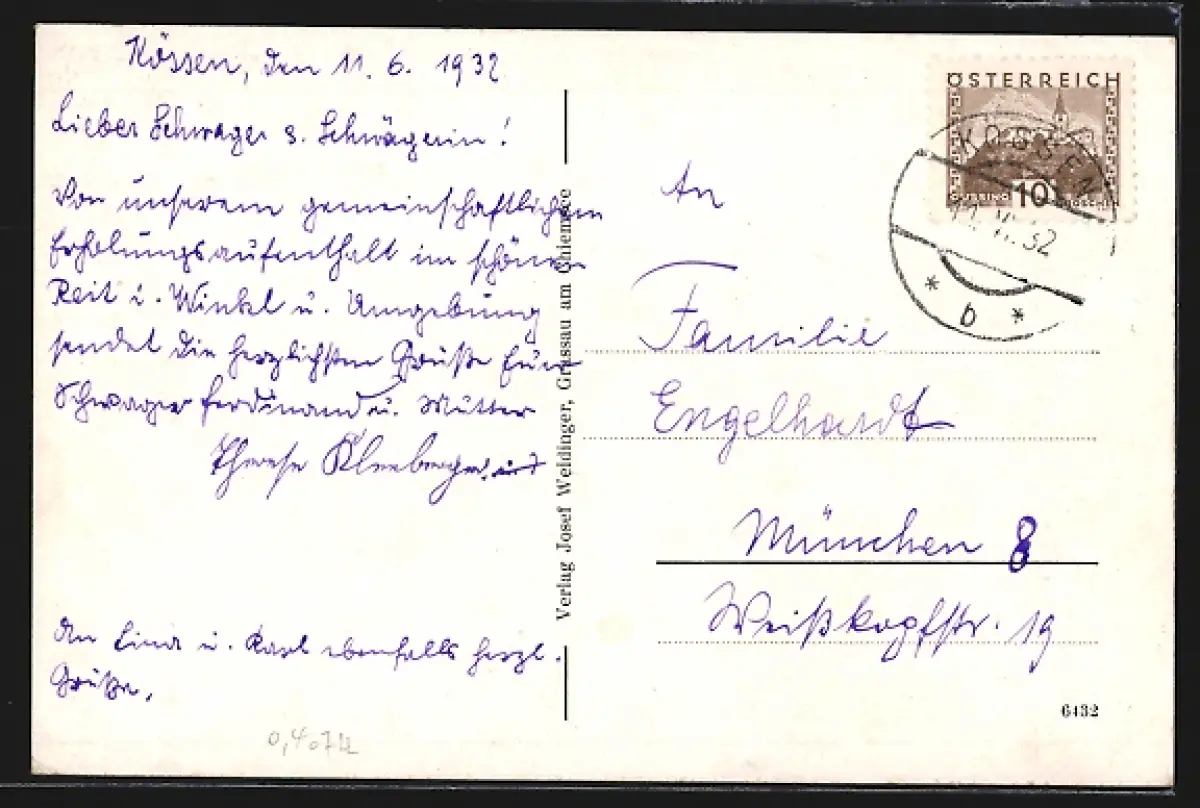 Kössen, den 11. 6. 1932
Lieber Schwager u. Schwägerin!
Von unserem gemeinschaftlichen
Erholungsaufenthalt im schönen
Reit i. Winkel u. Umgebung
sendet die herzlichsten Grüße Euer
Schwager Ferdinand u. Mutter
Therese
An Lina u. Karl ebenfalls herzl.
Grüße.
0,4.07
Verlag Josef Weldinger, Grassau am Chiemsee
ÖSTERREICH
10
KÖSSEN
VI. 32
* b *
An
Familie
Engelhardt
München 8
Weißkopfstr. 19
6432